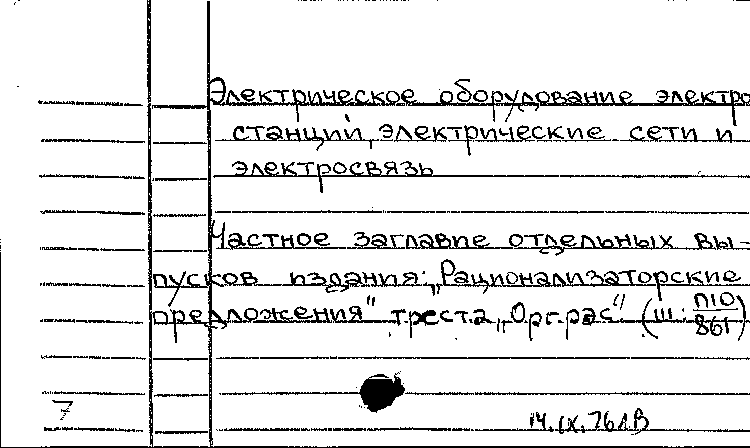 Электрическое оборудование электро
станций, электрические сети и
электросвязь
Частное заглавие отдельных вы-
пусков издания: „Рационализаторские
предложения" треста „Орг.рас" (ш: П10/861)
7
14.IX.76 ЛВ